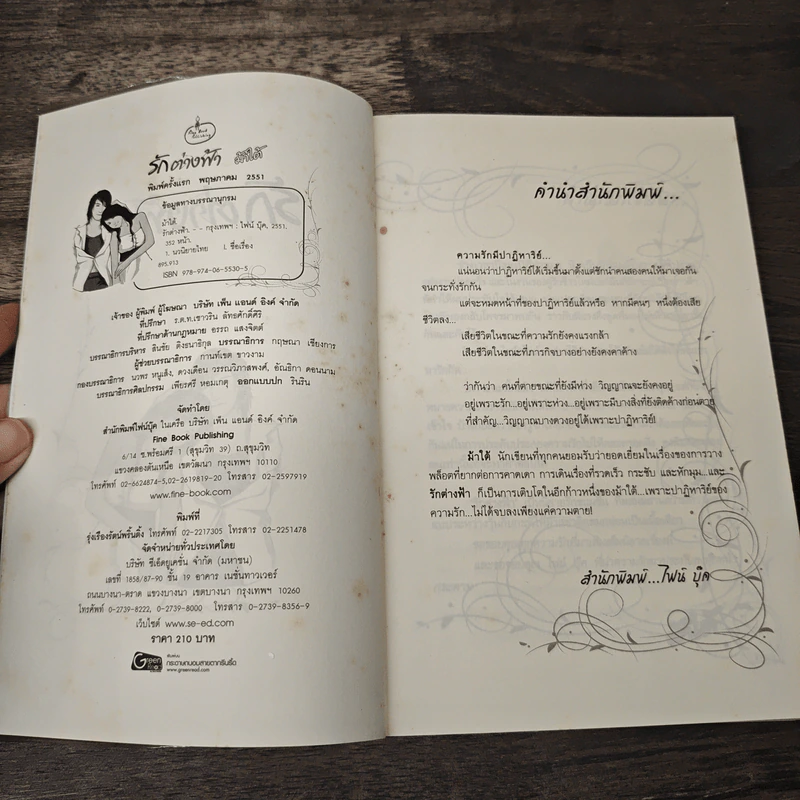 Fine Book Publishing
รักต่างฟ้า ม้าใต้
พิมพ์ครั้งแรก พฤษภาคม 2551
ข้อมูลทางบรรณานุกรม
ม้าใต้.
รักต่างฟ้า. - - กรุงเทพฯ : ไฟน์ บุ๊ค, 2551.
352 หน้า.
1. นวนิยายไทย I. ชื่อเรื่อง
895.913
ISBN 978-974-06-5530-5
เจ้าของ ผู้พิมพ์ ผู้โฆษณา บริษัท เพ็น แอนด์ อิงค์ จำกัด
ที่ปรึกษา ร.ต.ท.เชาวริน ลัทธศักดิ์ศิริ
ที่ปรึกษาด้านกฎหมาย อรรถ แสงจิตต์
บรรณาธิการบริหาร สินชัย ดิ่งธนาธิกุล บรรณาธิการ กฤษณา เชียงการ
ผู้ช่วยบรรณาธิการ กานท์เขต ชาวงาม
กองบรรณาธิการ นวพร หนูเส้ง, ดวงเดือน วรรณวิภาสพงศ์, อัณธิกา ดอนนาม
บรรณาธิการศิลปกรรม เพียรศรี หอมเกตุ ออกแบบปก รินริน
จัดทำโดย
สำนักพิมพ์ไฟน์บุ๊ค ในเครือ บริษัท เพ็น แอนด์ อิงค์ จำกัด
Fine Book Publishing
6/14 ซ.พร้อมศรี 1 (สุขุมวิท 39) ถ.สุขุมวิท
แขวงคลองตันเหนือ เขตวัฒนา กรุงเทพฯ 10110
โทรศัพท์ 02-6624874-5,02-2619819-20 โทรสาร 02-2597919
www.fine-book.com
พิมพ์ที่
รุ่งเรืองรัตน์พริ้นติ้ง โทรศัพท์ 02-2217305 โทรสาร 02-2251478
จัดจำหน่ายทั่วประเทศโดย
บริษัท ซีเอ็ดยูเคชั่น จำกัด (มหาชน)
เลขที่ 1858/87-90 ชั้น 19 อาคาร เนชั่นทาวเวอร์
ถนนบางนา-ตราด แขวงบางนา เขตบางนา กรุงเทพฯ 10260
โทรศัพท์ 0-2739-8222, 0-2739-8000 โทรสาร 0-2739-8356-9
เว็บไซต์ www.se-ed.com
ราคา 210 บาท
Green Read
พิมพ์บน
กระดาษถนอมสายตากรีนรี้ด
www.greenread.com
คำนำสำนักพิมพ์...
ความรักมีปาฏิหาริย์...
แน่นอนว่าปาฏิหาริย์ได้เริ่มขึ้นมาตั้งแต่ชักนำคนสองคนให้มาเจอกัน
จนกระทั่งรักกัน
แต่จะหมดหน้าที่ของปาฏิหาริย์แล้วหรือ หากมีคนๆ หนึ่งต้องเสีย
ชีวิตลง...
เสียชีวิตในขณะที่ความรักยังคงแรงกล้า
เสียชีวิตในขณะที่ภารกิจบางอย่างยังคงคาค้าง
ว่ากันว่า คนที่ตายขณะที่ยังมีห่วง วิญญาณจะยังคงอยู่
อยู่เพราะรัก...อยู่เพราะห่วง...อยู่เพราะมีบางสิ่งที่ยังติดค้างก่อนตาย
ที่สำคัญ...วิญญาณบางดวงอยู่ได้เพราะปาฏิหาริย์!
ม้าใต้ นักเขียนที่ทุกคนยอมรับว่ายอดเยี่ยมในเรื่องของการวาง
พล็อตที่ยากต่อการคาดเดา การเดินเรื่องที่รวดเร็ว กระชับ และหักมุม...และ
รักต่างฟ้า ก็เป็นการเติบโตในอีกก้าวหนึ่งของม้าใต้...เพราะปาฏิหาริย์ของ
ความรัก...ไม่ได้จบลงเพียงแค่ความตาย!
สำนักพิมพ์...ไฟน์ บุ๊ค